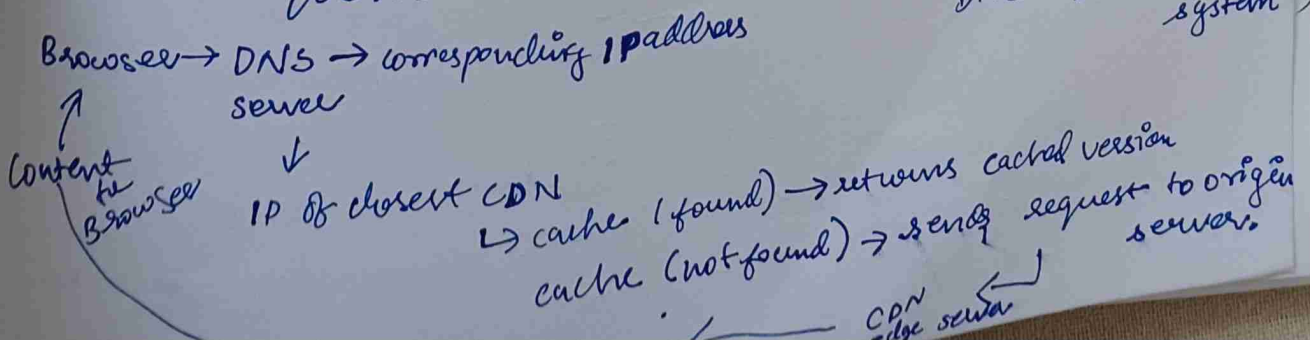 system
Browser → DNS → corresponding IP address
server
↓
Content
to
Browser
IP of closest CDN
↳ cache (found) → returns cached version
cache (not found) → sends request to origin
server.
CDN
edge server